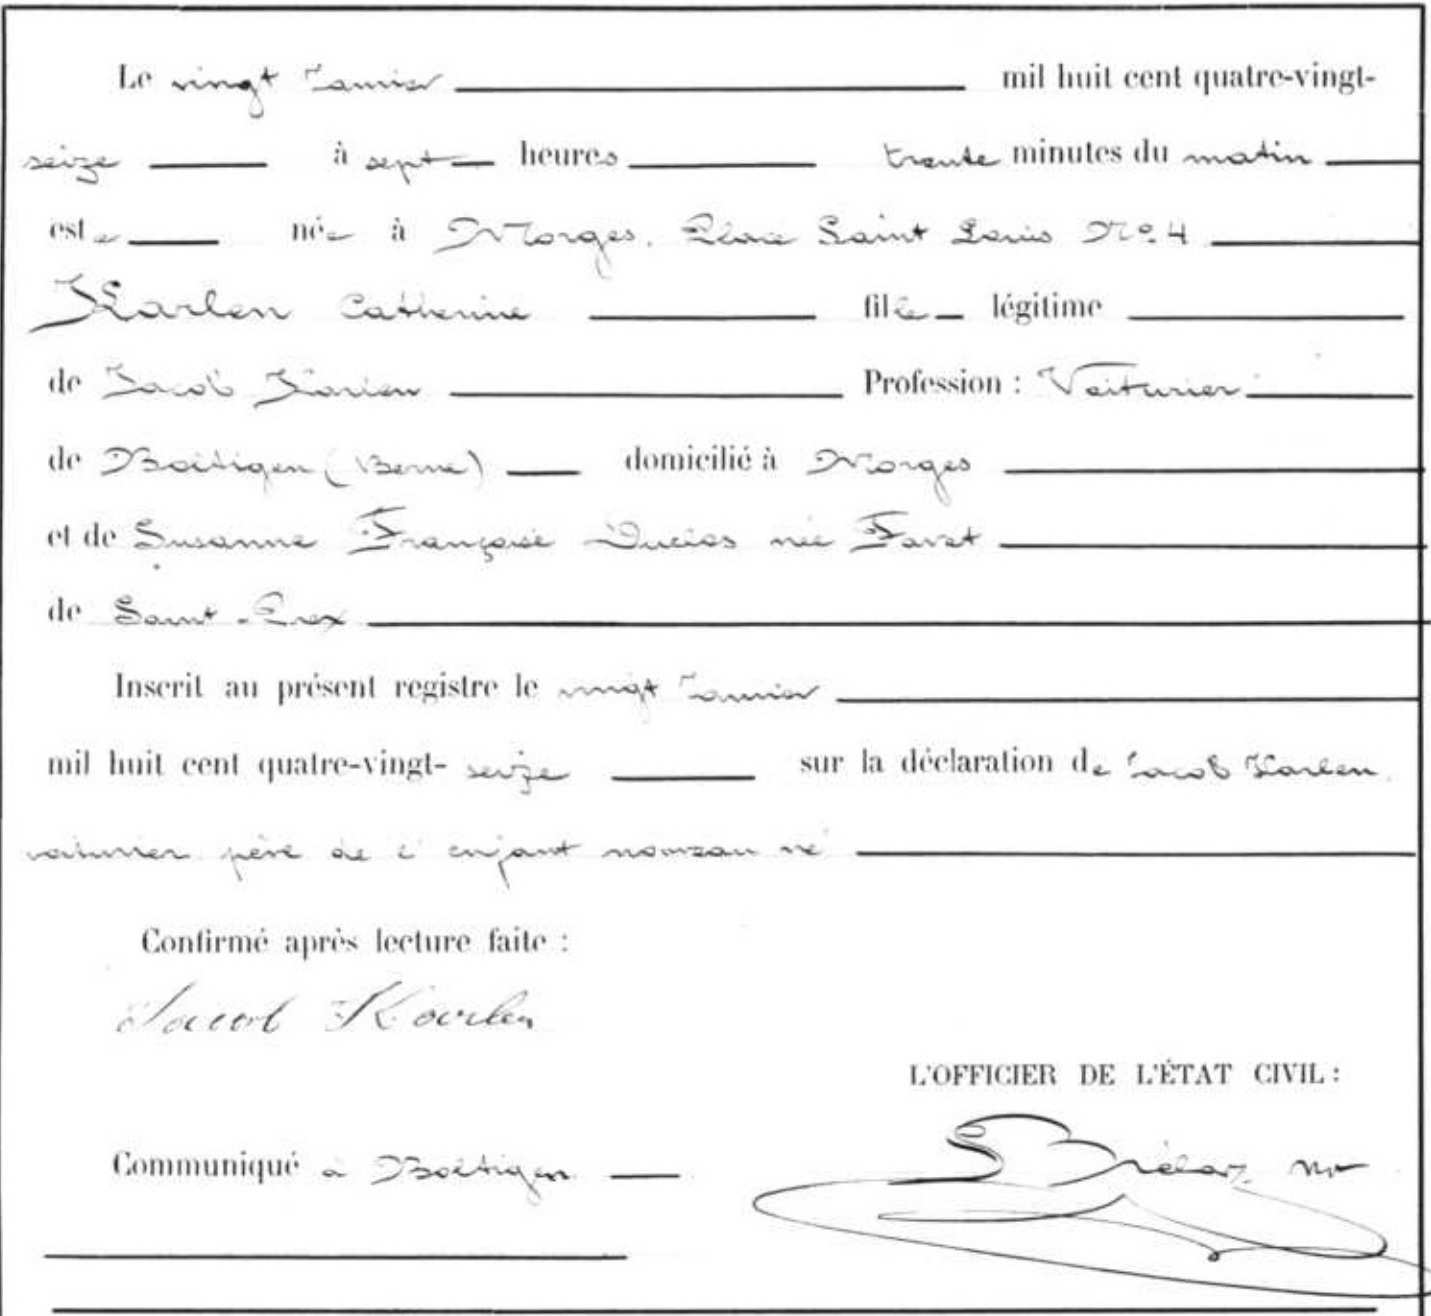 Le vingt Janvier mil huit cent quatre-vingt-
seize à sept heures trente minutes du matin
est née à Morges, Place Saint Louis No. 4
Karlen Catherine fille légitime
de Jacob Karlen Profession : Voiturier
de Boëtigen (Berne) domicilié à Morges
et de Susanne Françoise née
de Saint-Prex
Inscrit au présent registre le vingt Janvier
mil huit cent quatre-vingt- seize sur la déclaration de Jacob Karlen,
voiturier père de l'enfant nouveau né
Confirmé après lecture faite :
Jacob Karlen
L'OFFICIER DE L'ÉTAT CIVIL :
Communiqué à Boëtigen